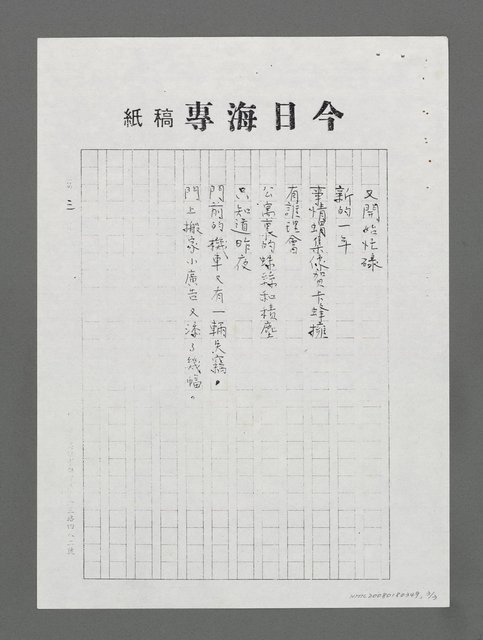 今日海專稿紙
又開始忙碌
新的一年
事情蝟集像賀卡蜂擁
有誰理會
公寓裏的蛛絲和積塵
只知道昨夜
門前的機車又有一輛失竊,
門上搬家小廣告又添了幾幅。
第三
三路四八二號
NMTL20080180349, 3/3